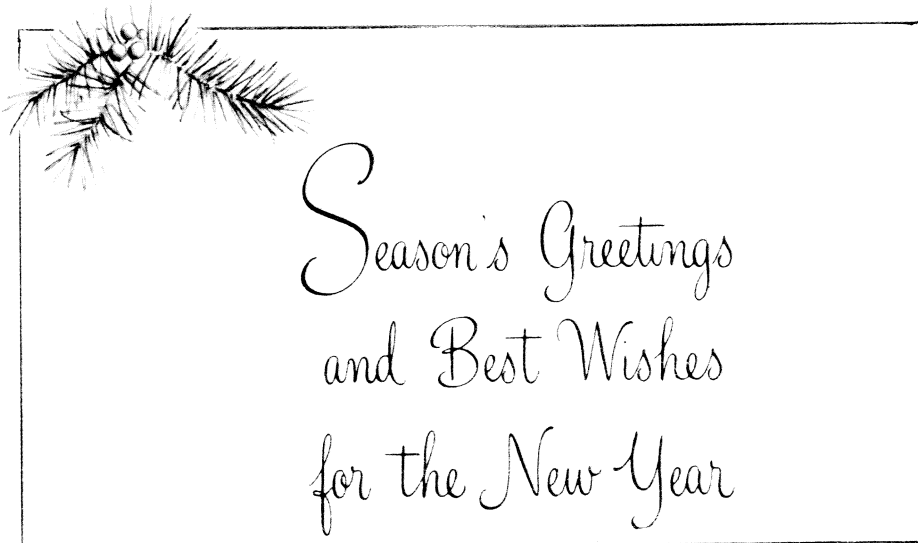 Season's Greetings
and Best Wishes
for the New Year